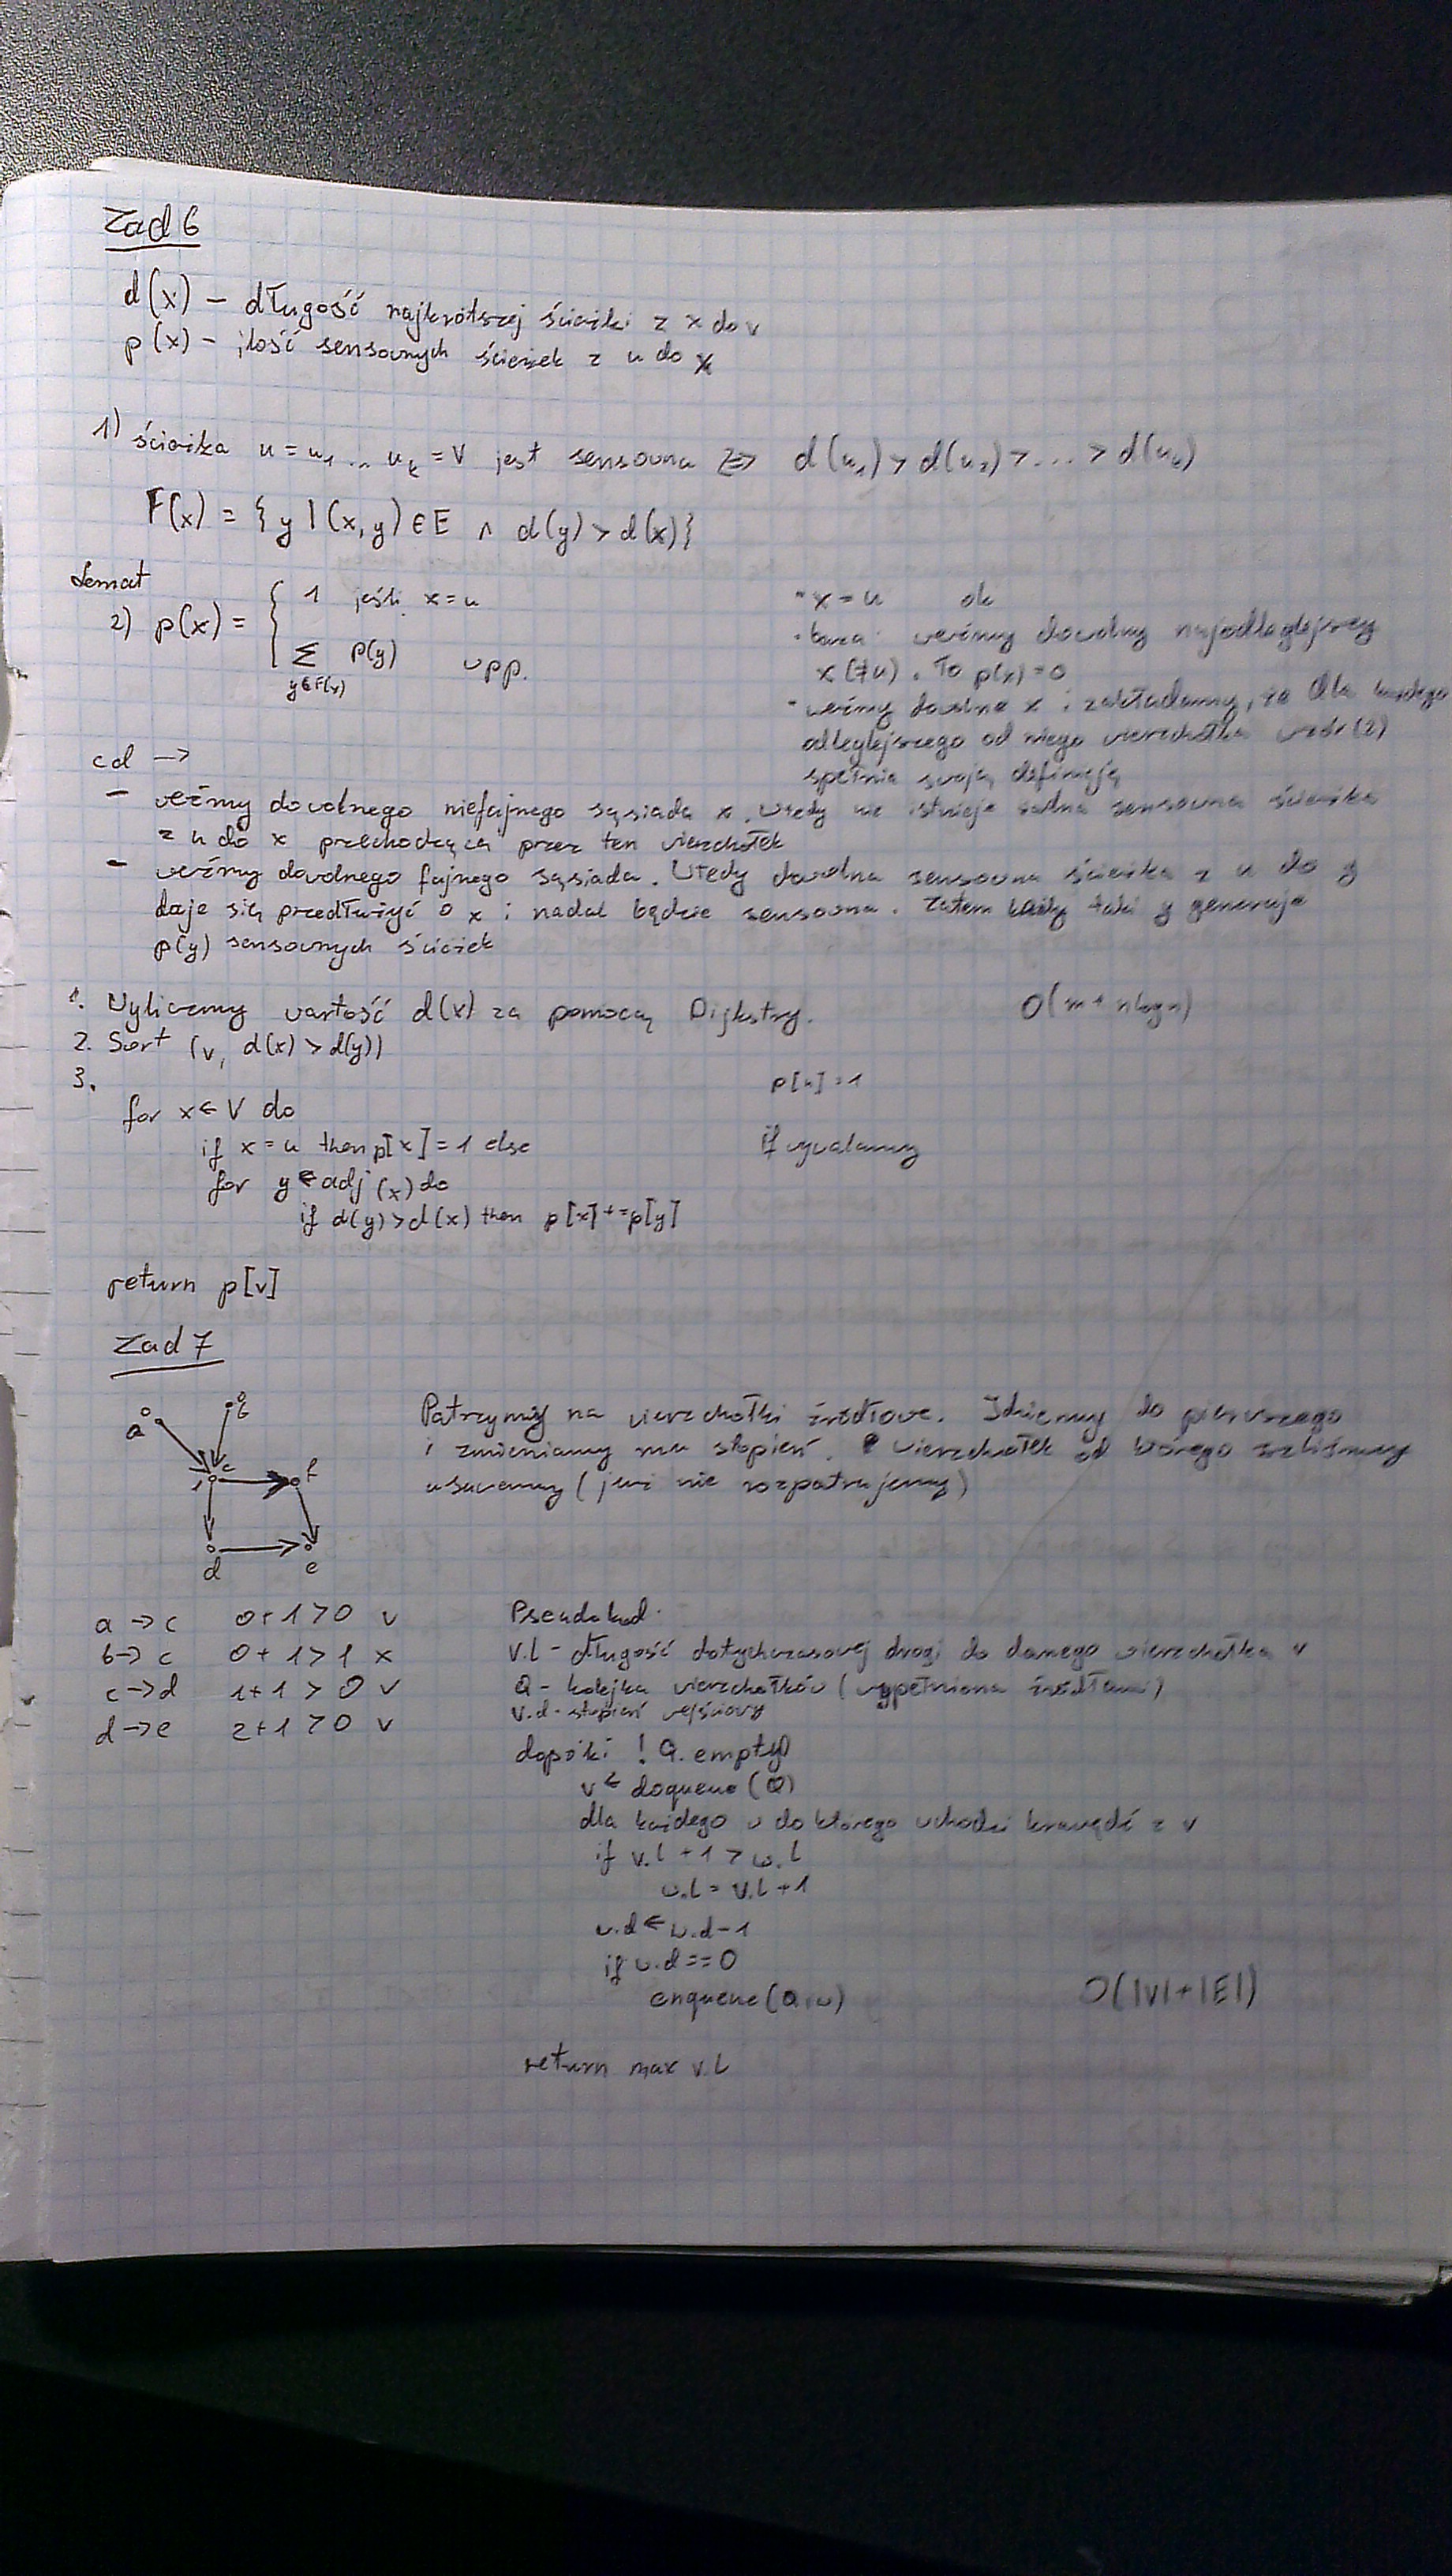 Zad 6
d(x) – długość najkrótszej ścieżki z x do v
p(x) – ilość sensownych ścieżek z u do x
1) ścieżka u = u₁ ... uₖ = v jest sensowna ⇔ d(u₁) > d(u₂) > ... > d(uₖ)
F(x) = { y | (x,y) ∈ E ∧ d(y) > d(x) }
Lemat
2) p(x) = { 1 jeśli x = u
Σ p(y) wpp.
y∈F(x)
• x = u ok
• baza: weźmy dowolny najodleglejszy
x (≠u). To p(x) = 0
• weźmy dowolne x i zakładamy, że dla każdego
odleglejszego od niego wierzchołka wzór (2)
spełnia swoją definicję
cd →
– weźmy dowolnego niefajnego sąsiada x. Wtedy nie istnieje żadna sensowna ścieżka
z u do x przechodząca przez ten wierzchołek
– weźmy dowolnego fajnego sąsiada. Wtedy dowolna sensowna ścieżka z u do y
daje się przedłużyć o x i nadal będzie sensowna. Zatem każdy taki y generuje
p(y) sensownych ścieżek
1. Wyliczmy wartość d(x) za pomocą Dijkstry. O(m + n log n)
2. Sort (v, d(x) > d(y))
3. p[u] = 1
for x ← V do
if x = u then p[x] = 1 else if wywalamy
for y ← adj (x) do
if d(y) > d(x) then p[x] += p[y]
return p[v]
Zad 7
a b
c f
d e
Patrzymy na wierzchołki źródłowe. Idziemy do pierwszego
i zmieniamy mu stopień. Wierzchołek od którego szliśmy
usuwamy (już nie rozpatrujemy)
a → c 0+1 > 0 v
b → c 0+1 > 1 x
c → d 1+1 > 0 v
d → e 2+1 > 0 v
Pseudokod:
v.l – długość dotychczasowej drogi do danego wierzchołka v
Q – kolejka wierzchołków (wypełniona źródłami)
v.d – stopień wejściowy
dopóki ! Q.empty()
v ← dequeue (Q)
dla każdego w do którego wchodzi krawędź z v
if v.l + 1 > w.l
w.l = v.l + 1
w.d ← w.d – 1
if w.d == 0
enqueue (Q, w)
O(|V| + |E|)
return max v.l